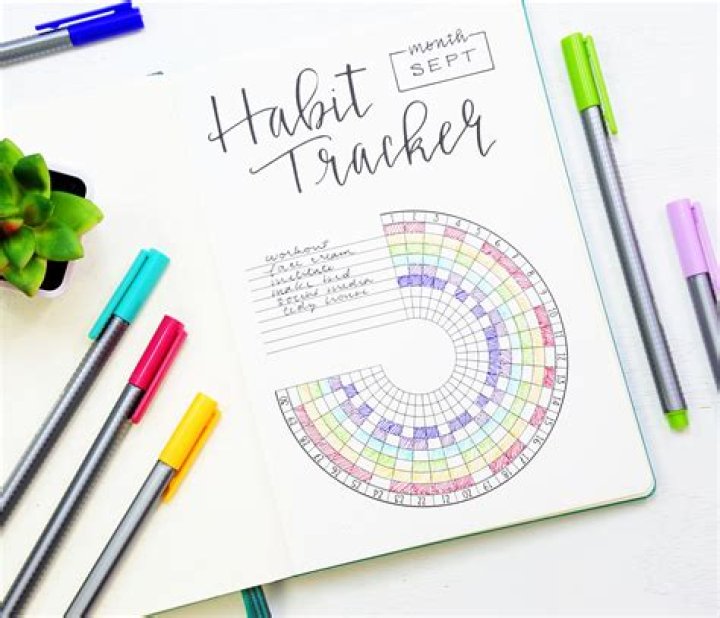 month
SEPT
Habit
Tracker
workout
face cream
meditate
make bed
social media
tidy house
1 2 3 4 5 6 7 8 9 10 11 12 13 14 15 16 17 18 19 20 21 22 23 24 25 26 27 28 29 30